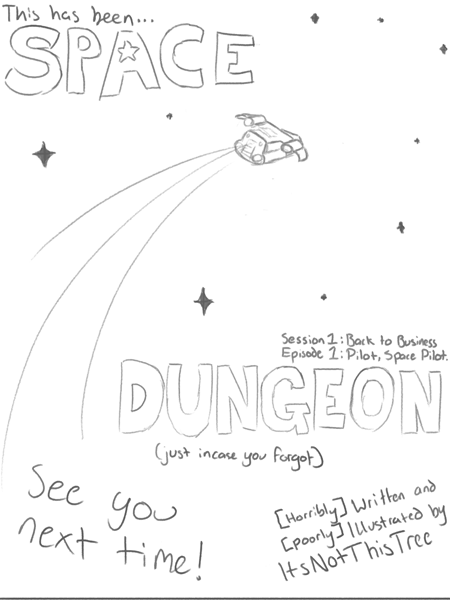 This has been...
SPACE
Session 1: Back to Business
Episode 1: Pilot, Space Pilot.
DUNGEON
(just incase you forgot)
See you
next time!
[Horribly] Written and
[poorly] Illustrated by
ItsNotThisTree